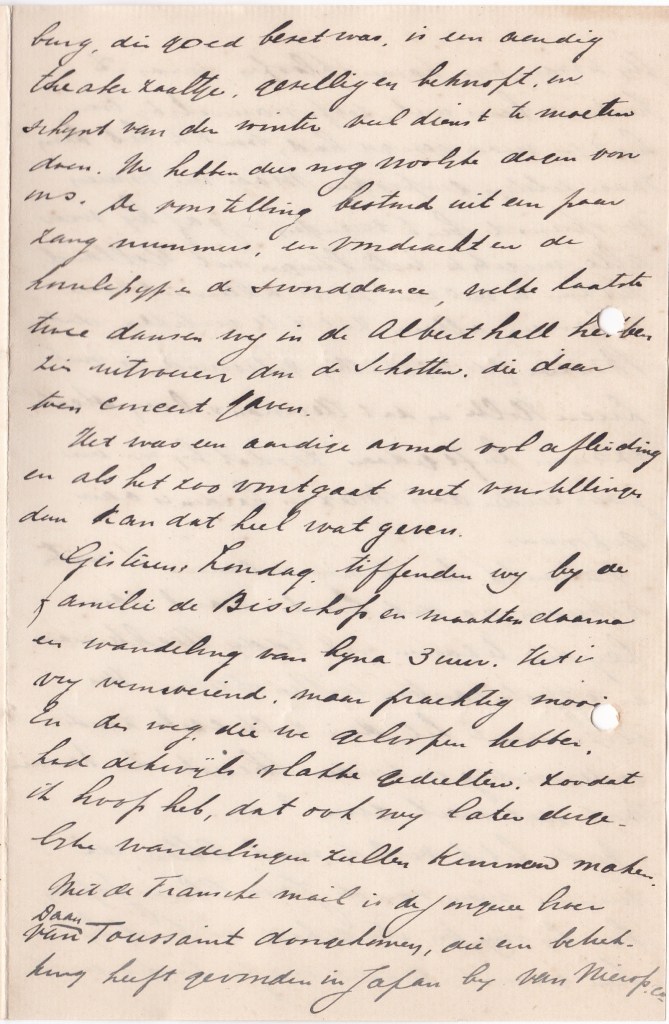 burg, die goed bezet was, is een aardig
theaterzaaltje, gezellig en beknopt, en
schynt van den winter veel dienst te moeten
doen. We hebben dus nog vroolyke dagen voor
ons. De voorstelling bestond uit een paar
zang nummers, en voordracht en de
hornepype de sworddance, welke laatste
twee dansen wy in de Albert hall hebben
zien uitvoeren door de Schotten, die daar
toen concert gaven.
Het was een aardige avond vol afleiding
en als het zoo voortgaat met voorstellingen
dan kan dat heel wat geven.
Gisteren, Zondag, tiffenden wy by de
familie de Bisschop en maakten daarna
een wandeling van byna 3 uur. Het is
vry vermoeiend, maar prachtig mooi
En de weg, die we geloopen hebben,
had dikwijls vlakke gedeelten, zoodat
ik hoop heb, dat ook wy later derge-
lyke wandelingen zullen kunnen maken.
Met de Fransche mail is de jongeheer
Daan
van Toussaint aangekomen, die een betrek-
king heeft gevonden in Japan by van Nierop. Co